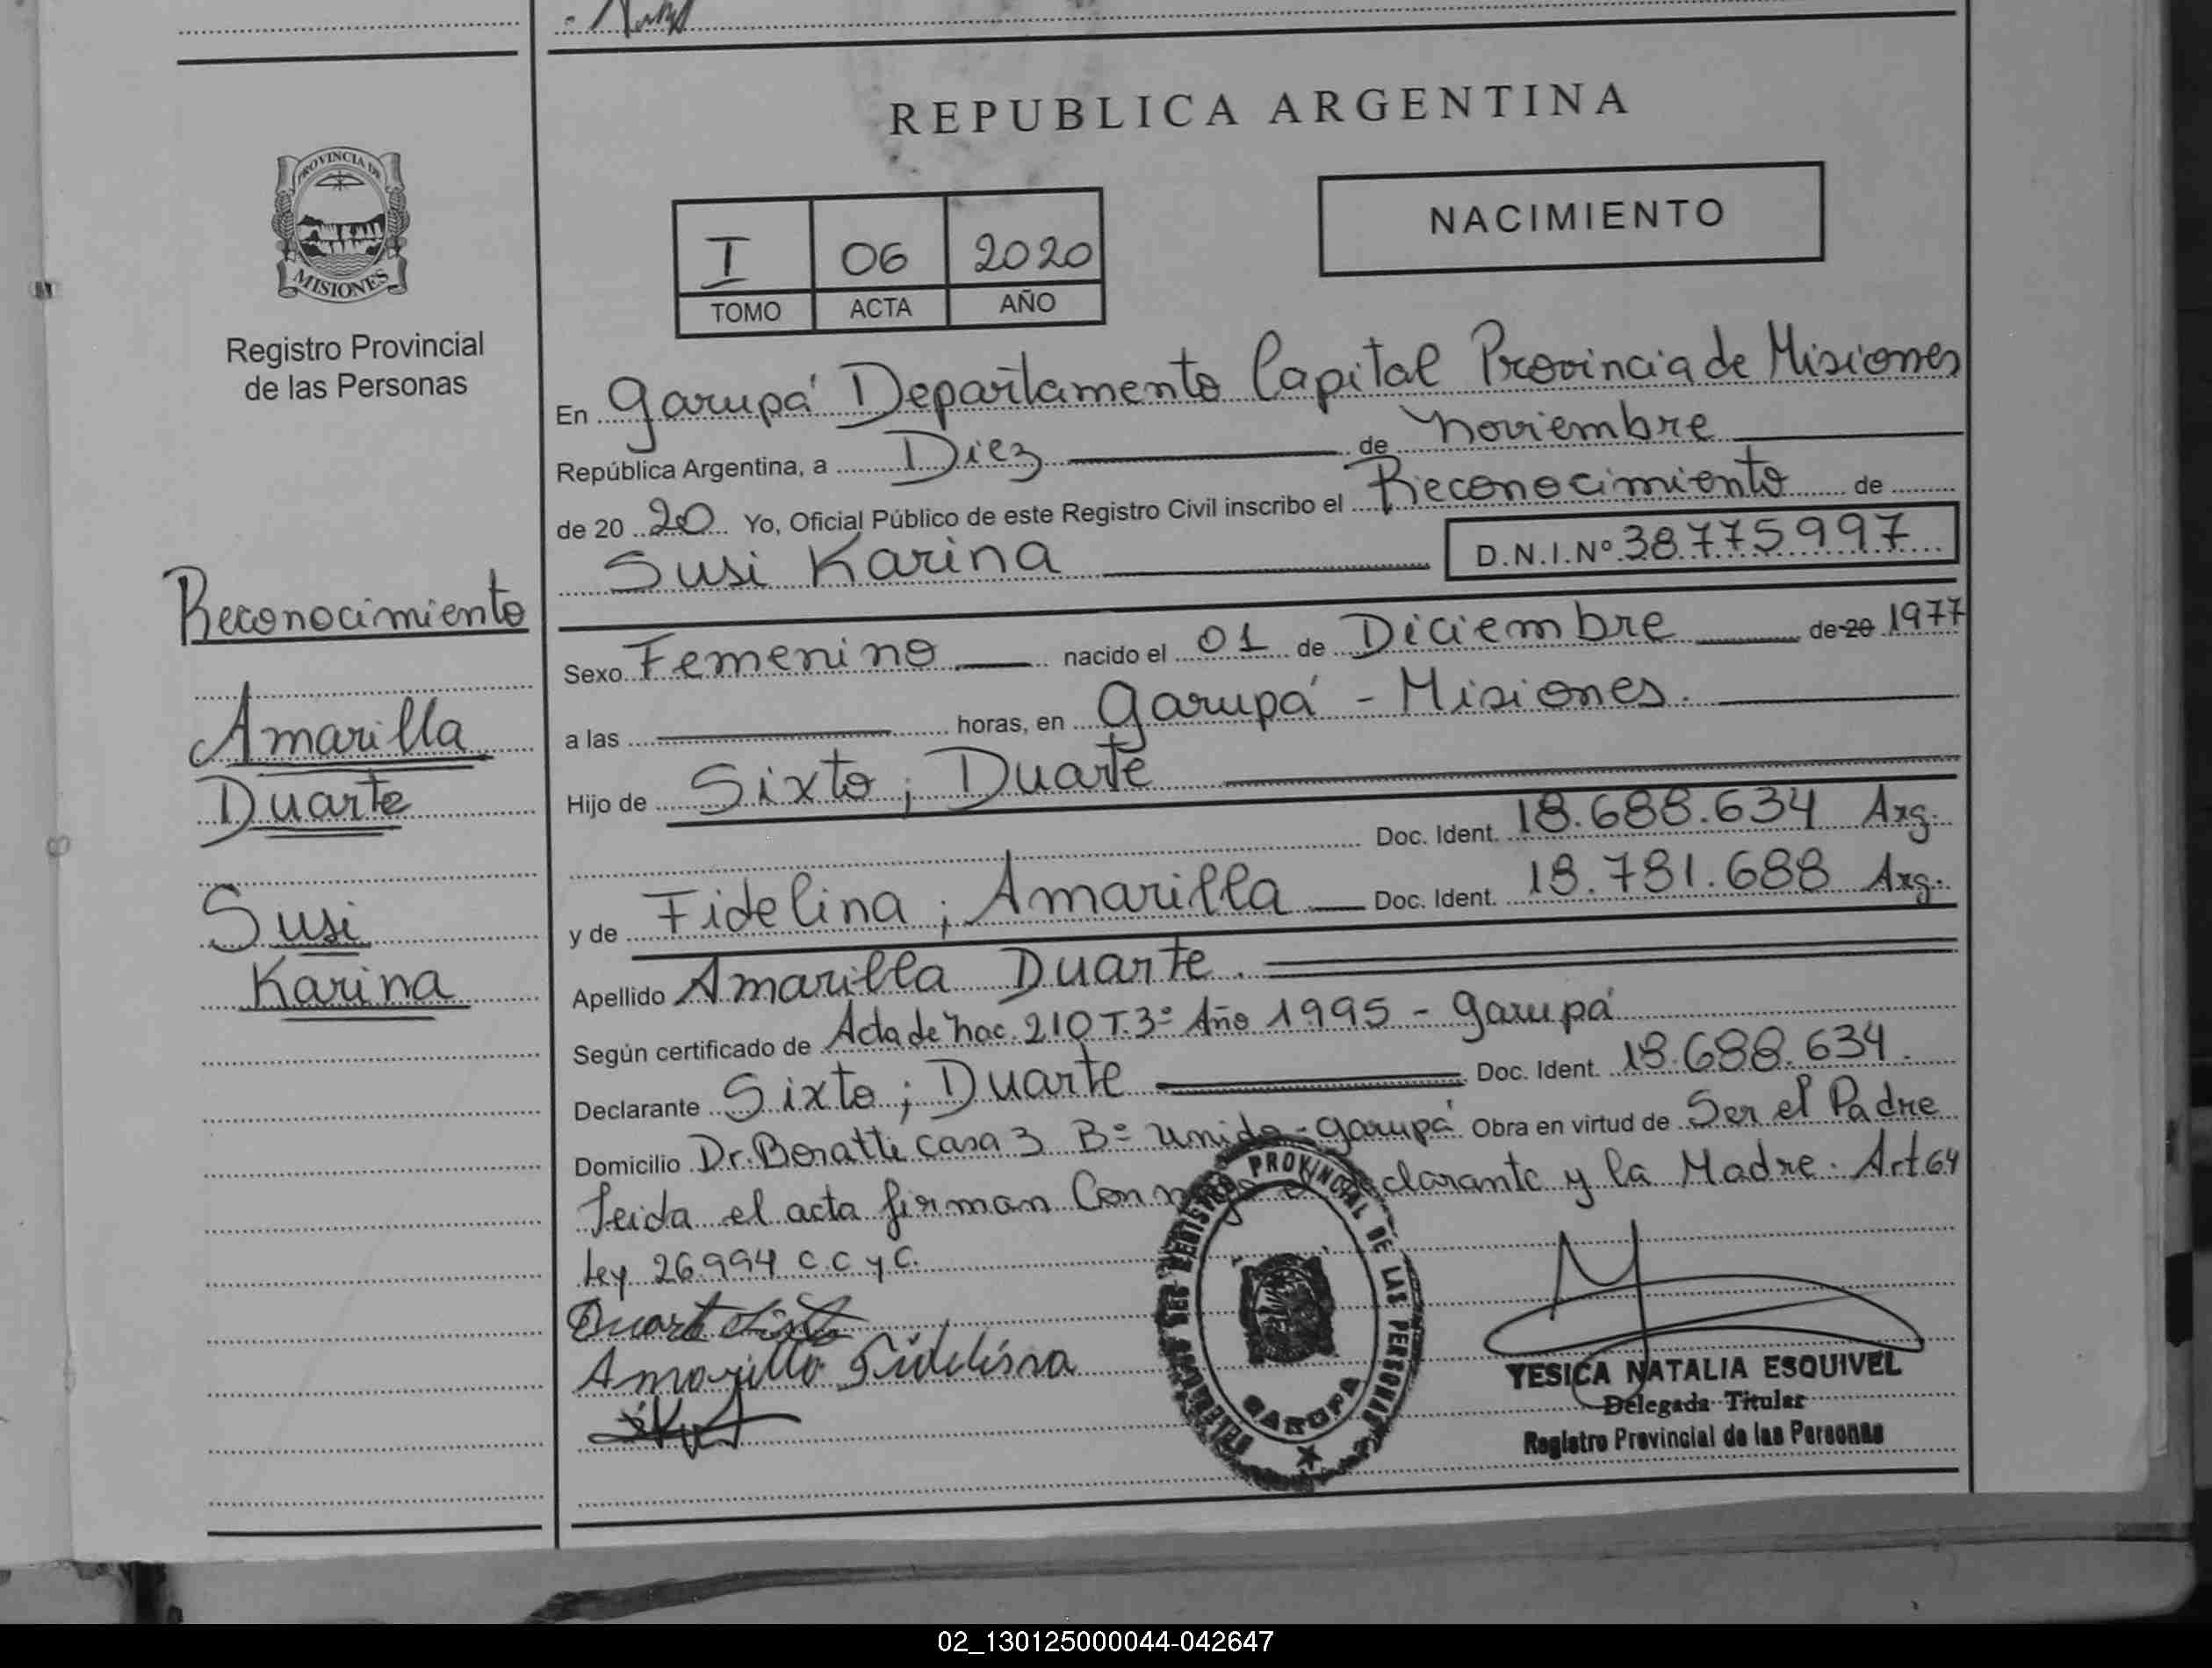 REPUBLICA ARGENTINA
PROVINCIA DE
MISIONES
Registro Provincial
de las Personas
NACIMIENTO
I 06 2020
TOMO ACTA AÑO
En Garupá Departamento Capital Provincia de Misiones
República Argentina, a Diez de Noviembre
de 20 20 Yo, Oficial Público de este Registro Civil inscribo el Reconocimiento de
Susi Karina D.N.I.Nº 38775997
Reconocimiento
Amarilla
Duarte
Susi
Karina
Sexo Femenino nacido el 01 de Diciembre de 20 1977
a las horas, en Garupá - Misiones.
Hijo de Sixto; Duarte
Doc. Ident. 18.688.634 Arg.
y de Fidelina; Amarilla Doc. Ident. 18.781.688 Arg.
Apellido Amarilla Duarte.
Según certificado de Acta de Nac. 210 T.3º Año 1995 - Garupá
Declarante Sixto; Duarte Doc. Ident. 18.688.634.
Domicilio Dr. Boratti casa 3 Bº Unido - Garupá Obra en virtud de Ser el Padre
Leida el acta firman Con declarante y la Madre. Art 64
Ley 26994 C.C y C.
Duarte Sixto
Amarilla Fidelina
PROVINCIAL DE LAS PERSONAS
GARUPA
YESICA NATALIA ESQUIVEL
Delegada Titular
Registro Provincial de las Personas
02_130125000044-042647